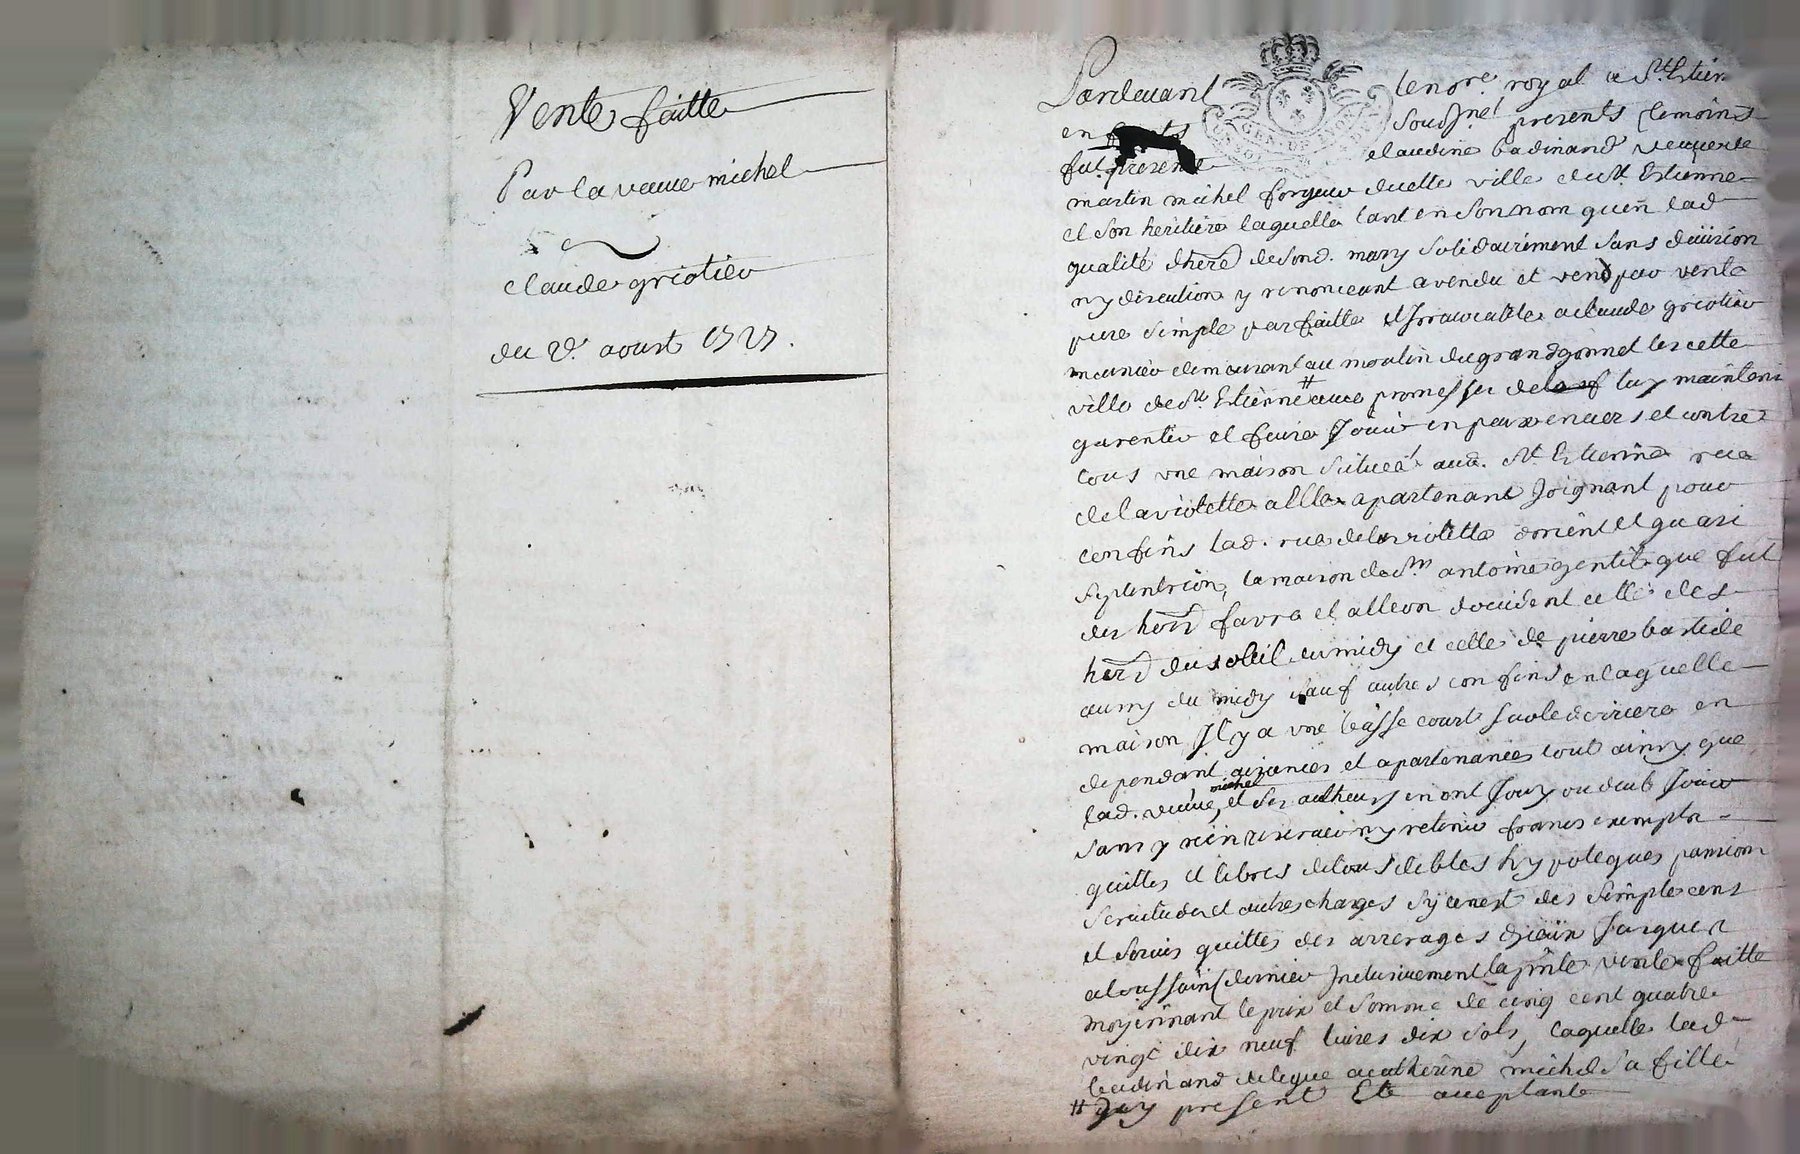 Vente faitte
Par la veuve michel
a
claude griotier
du 2e. aoust 1727.
Pardevant le nore. royal a St. Estienne
en forests sousne. presents temoins
fut presente claudine badinand veufve de
martin michel forgeur de cette ville de St. Estienne
et son heritiere laquelle tant en son nom qu'en lad
qualité d'herd de sond. mary solidairement sans division
ny discution y renonceant a vendu et vend par vente
pure simple parfaitte et Irrauocable a claude griotier
meunier demeurant au moulin du grand gonnet lez cette
ville de St. Estienne # auec promesse de luy maintenir
garentir et faire Jouir en paix envers et contre
tous vne maison scituéé aud. St. Estienne rue
de la violette a elle apartenant Joignant pour
confins lad. rue de la violette d'orient et quasi
septentrion, la maison de Sr antoine gentil que fut
des herd favre et alleon d'occident celle des
herd du soleil du midy et celle de pierre bastide
aussy du midy sauf autres confins en laquelle
maison Il y a vne basse court sur le derriere en
dependant aizances et apartenances tout ainsy que
lad. veuue michel, et ses autheurs en ont Jouy ou deub Jouir
sans y rien reserver ny retenir francs exempte
quittes et libres de tous debtes hypoteques pansions
seruitudes et autres charges sy ce n'est des simple cens
et seruis quittes des arrerages d'iceux Jusques
a toussaint dernier Inclusiuement la pnte vente faitte
moyennant le prix et somme de cinq cent quatre
vingt dix neuf liures dix sols, laquelle lad
badinand delegue a catherine michel sa fille
# Icy present Et acceptante